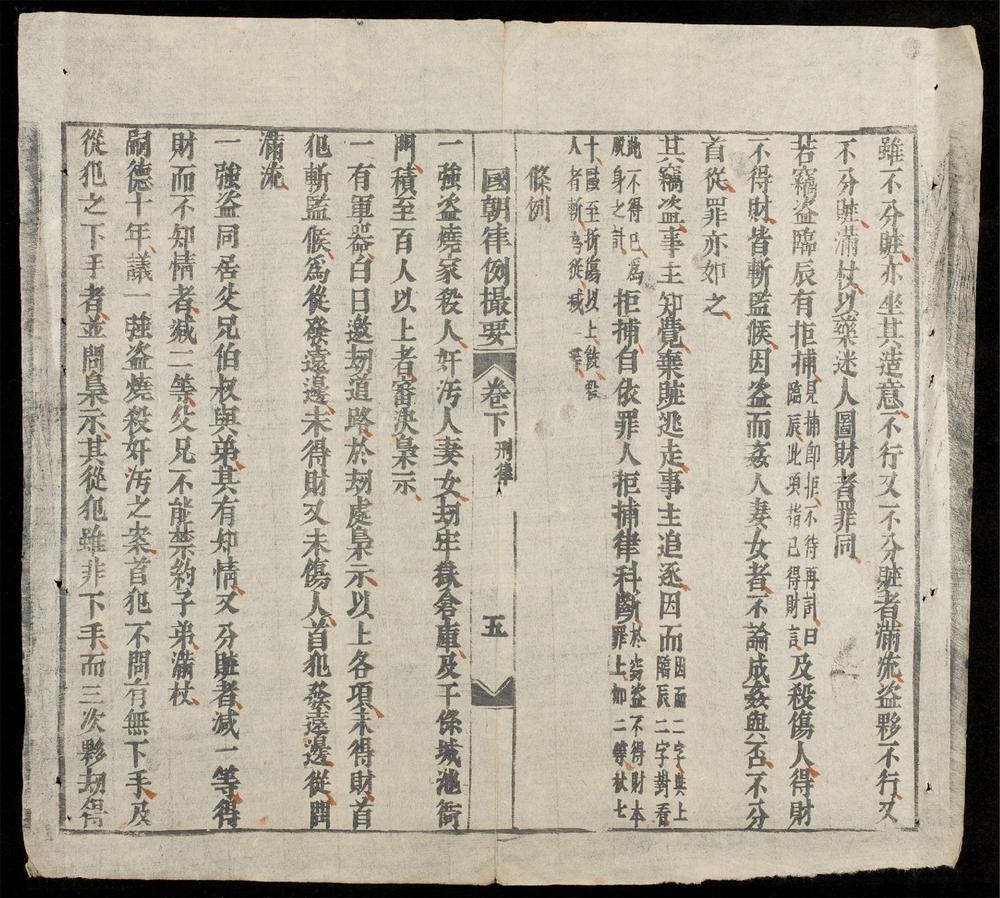 雖不分賍亦坐其造意不行又不分賍者滿流盜夥不行又
不分賍滿杖以藥迷人圖財者罪同
若竊盜臨辰有拒捕見捕即拒不待再計曰臨辰此項指已得財言及殺傷人得財
不得財皆斬監候因盜而姦人妻女者不論成姦與否不分
首從罪亦如之
其竊盜事主知覺棄賍逃走事主追逐因而因而二字與上臨辰二字對看
此不得已為脫身之計拒捕自依罪人拒捕律科斷於竊盜不得財本罪上加二等杖七
十毆至折傷以上絞殺人者斬為從減一等
條例
國朝律例撮要 卷下 刑律 五
一強盜燒家殺人奸汚人妻女刼牢獄倉庫及干係城池衙
門積至百人以上者審決梟示
一有軍器白日邀刼道路於刼處梟示以上各項未得財首
犯斬監候為從發遠邊未得財又未傷人首犯發遠邊從問
滿流
一強盜同居父兄伯叔與弟其有知情又分賍者減一等得
財而不知情者減二等父兄不能禁約子弟滿杖
嗣德十年議一強盜燒殺奸汚之案首犯不問有無下手及
從犯之下手者並問梟示其從犯雖非下手而三次夥刼得